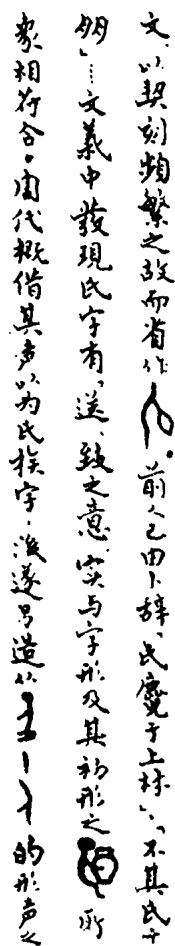 文，以契刻频繁之故而省作。前人已由卜辞“氏麑于上林”、“不其氏
”……文义中發現氏字有“送、致”之意，实与字形及其初形之所
象相符合。周代概借其声以为氏族字，後遂另造从的形声之